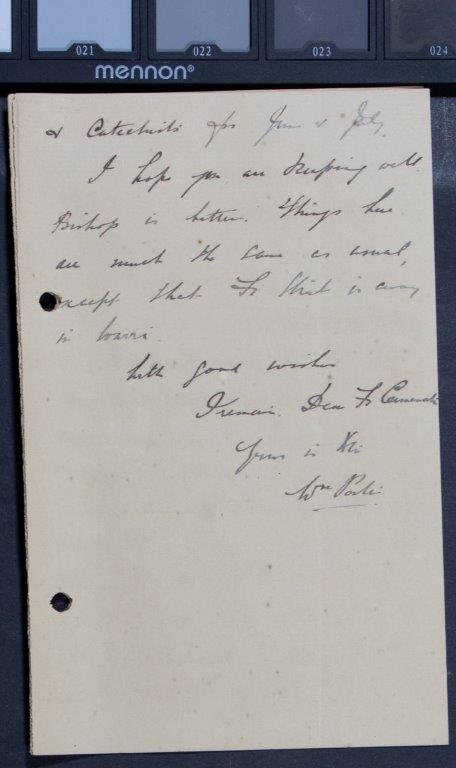 021 022 023 024
mennon®
& Catechists for June & July.
I hope you are keeping well.
Bishop is better. Things here
are much the same as usual,
except that Fr is away
in Warri.
With good wishes
I remain Dear Fr
Yours in Xti
Wm Porter